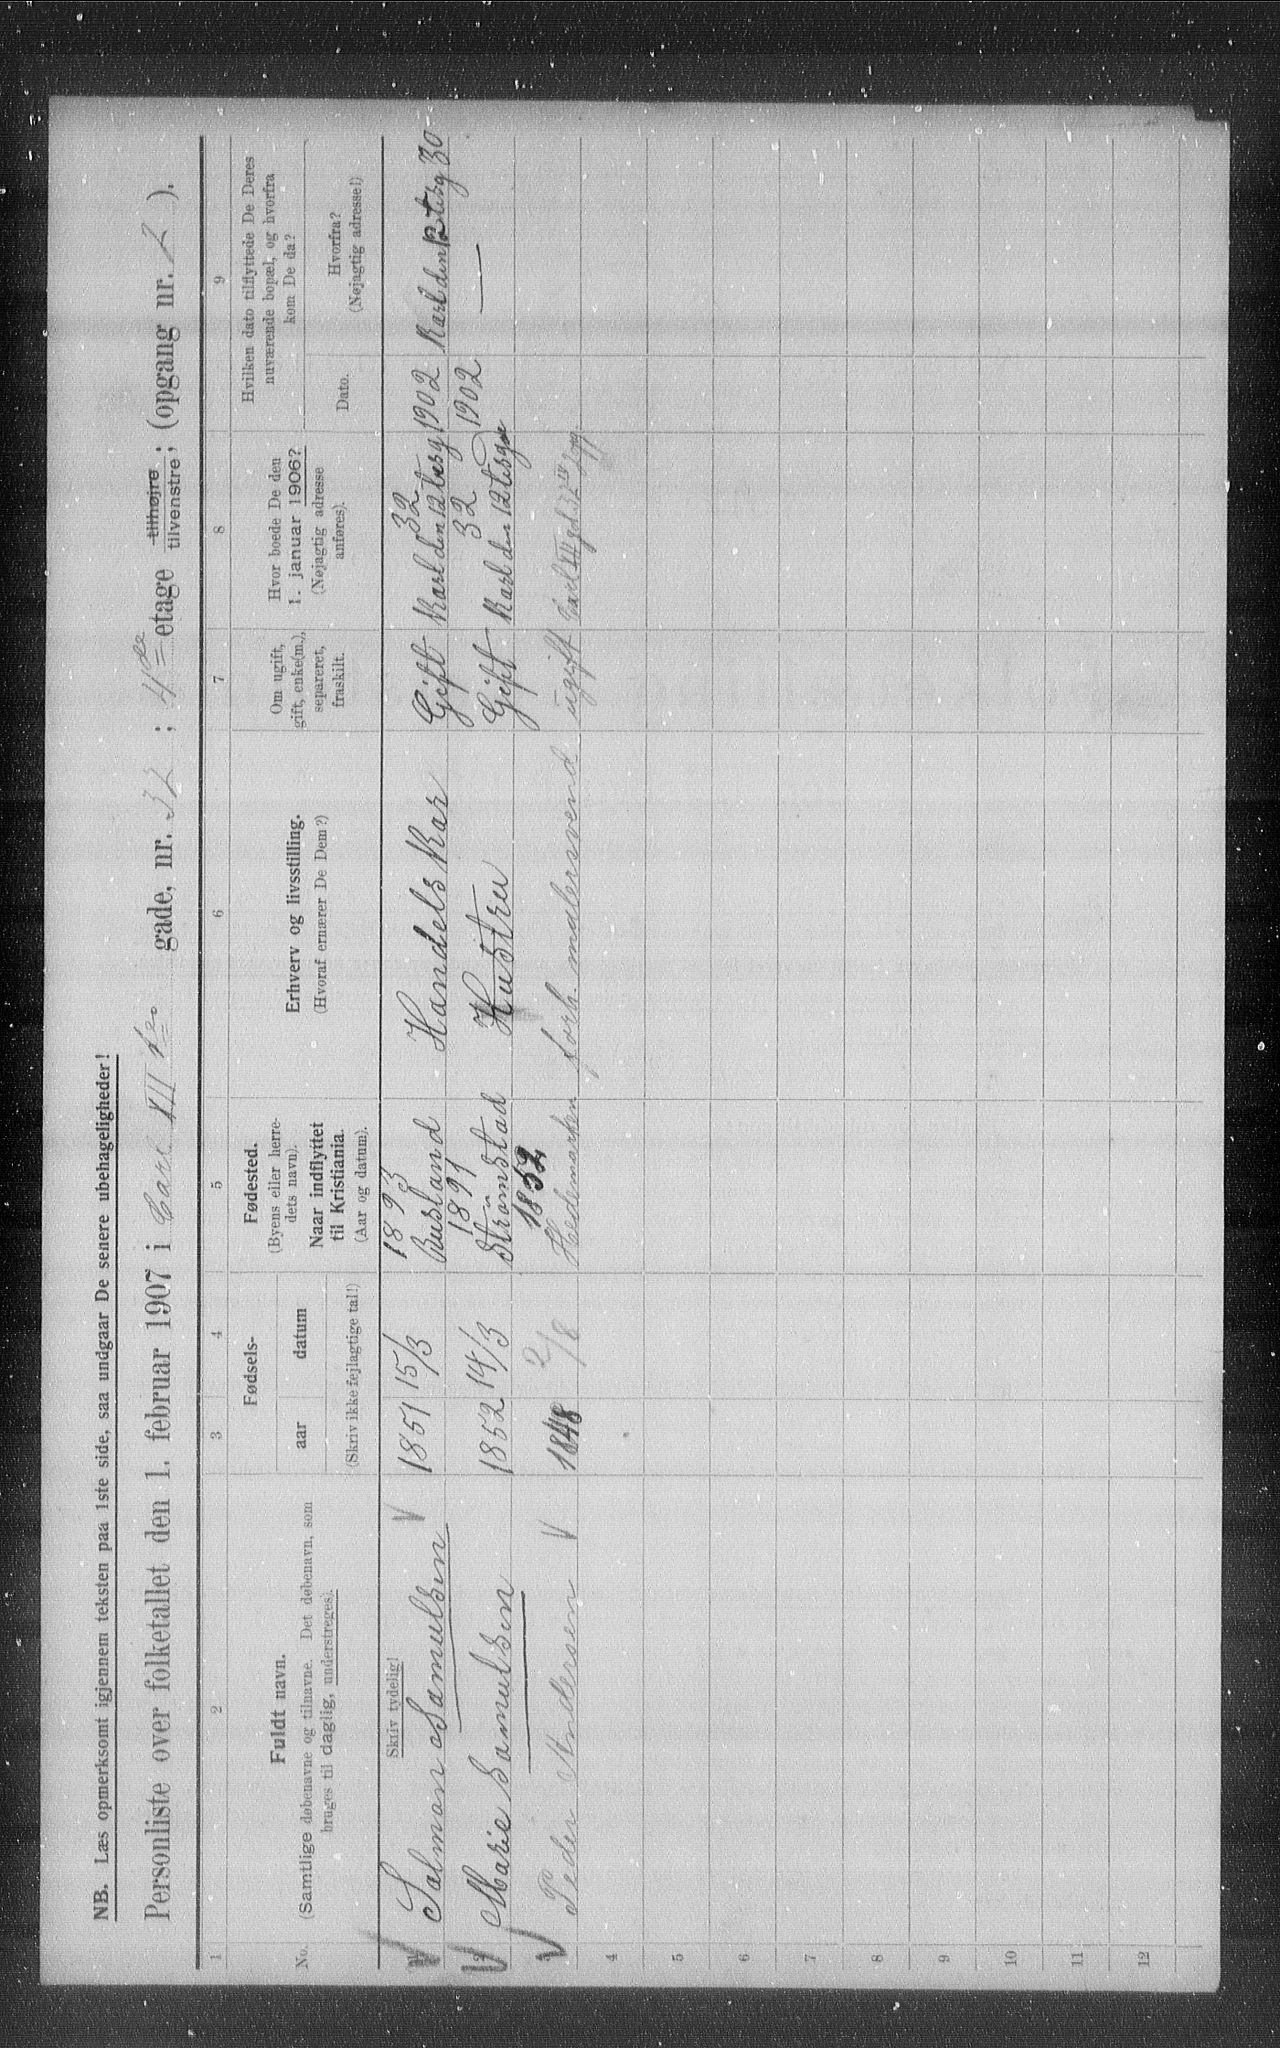 NB. Læs opmerksomt igjennem teksten paa 1ste side, saa undgaar De senere ubehageligheder!
Personliste over folketallet den 1. februar 1907 i Carl XII tes gade, nr. 32 ; 4de etage tilhøjre tilvenstre; (opgang nr. 2 ).
1 2 3 4 5 6 7 8 9
No.
Fuldt navn.
(Samtlige døbenavne og tilnavne. Det døbenavn, som
bruges til daglig, understreges).
Skriv tydelig!
Fødsels-
aar datum
(Skriv ikke fejlagtige tal!)
Fødested.
(Byens eller herre-
dets navn).
Naar indflyttet
til Kristiania.
(Aar og datum).
Erhverv og livsstilling.
(Hvoraf ernærer De Dem?)
Om ugift,
gift, enke(m.),
separeret,
fraskilt.
Hvor boede De den
1. januar 1906?
(Nøjagtig adresse
anføres).
Hvilken dato tilflyttede De Deres
nuværende bopæl, og hvorfra
kom De da?
Dato.
Hvorfra?
(Nøjagtig adresse!)
1893 32
Salman Samulsen V 1851 15/3 Rusland Handels Kar Gift Karl den 12 tesg 1902 Karl den 12 tesg 30
1891 32
2 Marie Samulsen 1852 14/3 Strömstad Hustru Gift Karl den 12 tesgde 1902 —
1852
Peder Andersen V 1848 2/8 Hedemarken forh. malersvend ugift
4
5
6
7
8
9
10
11
12